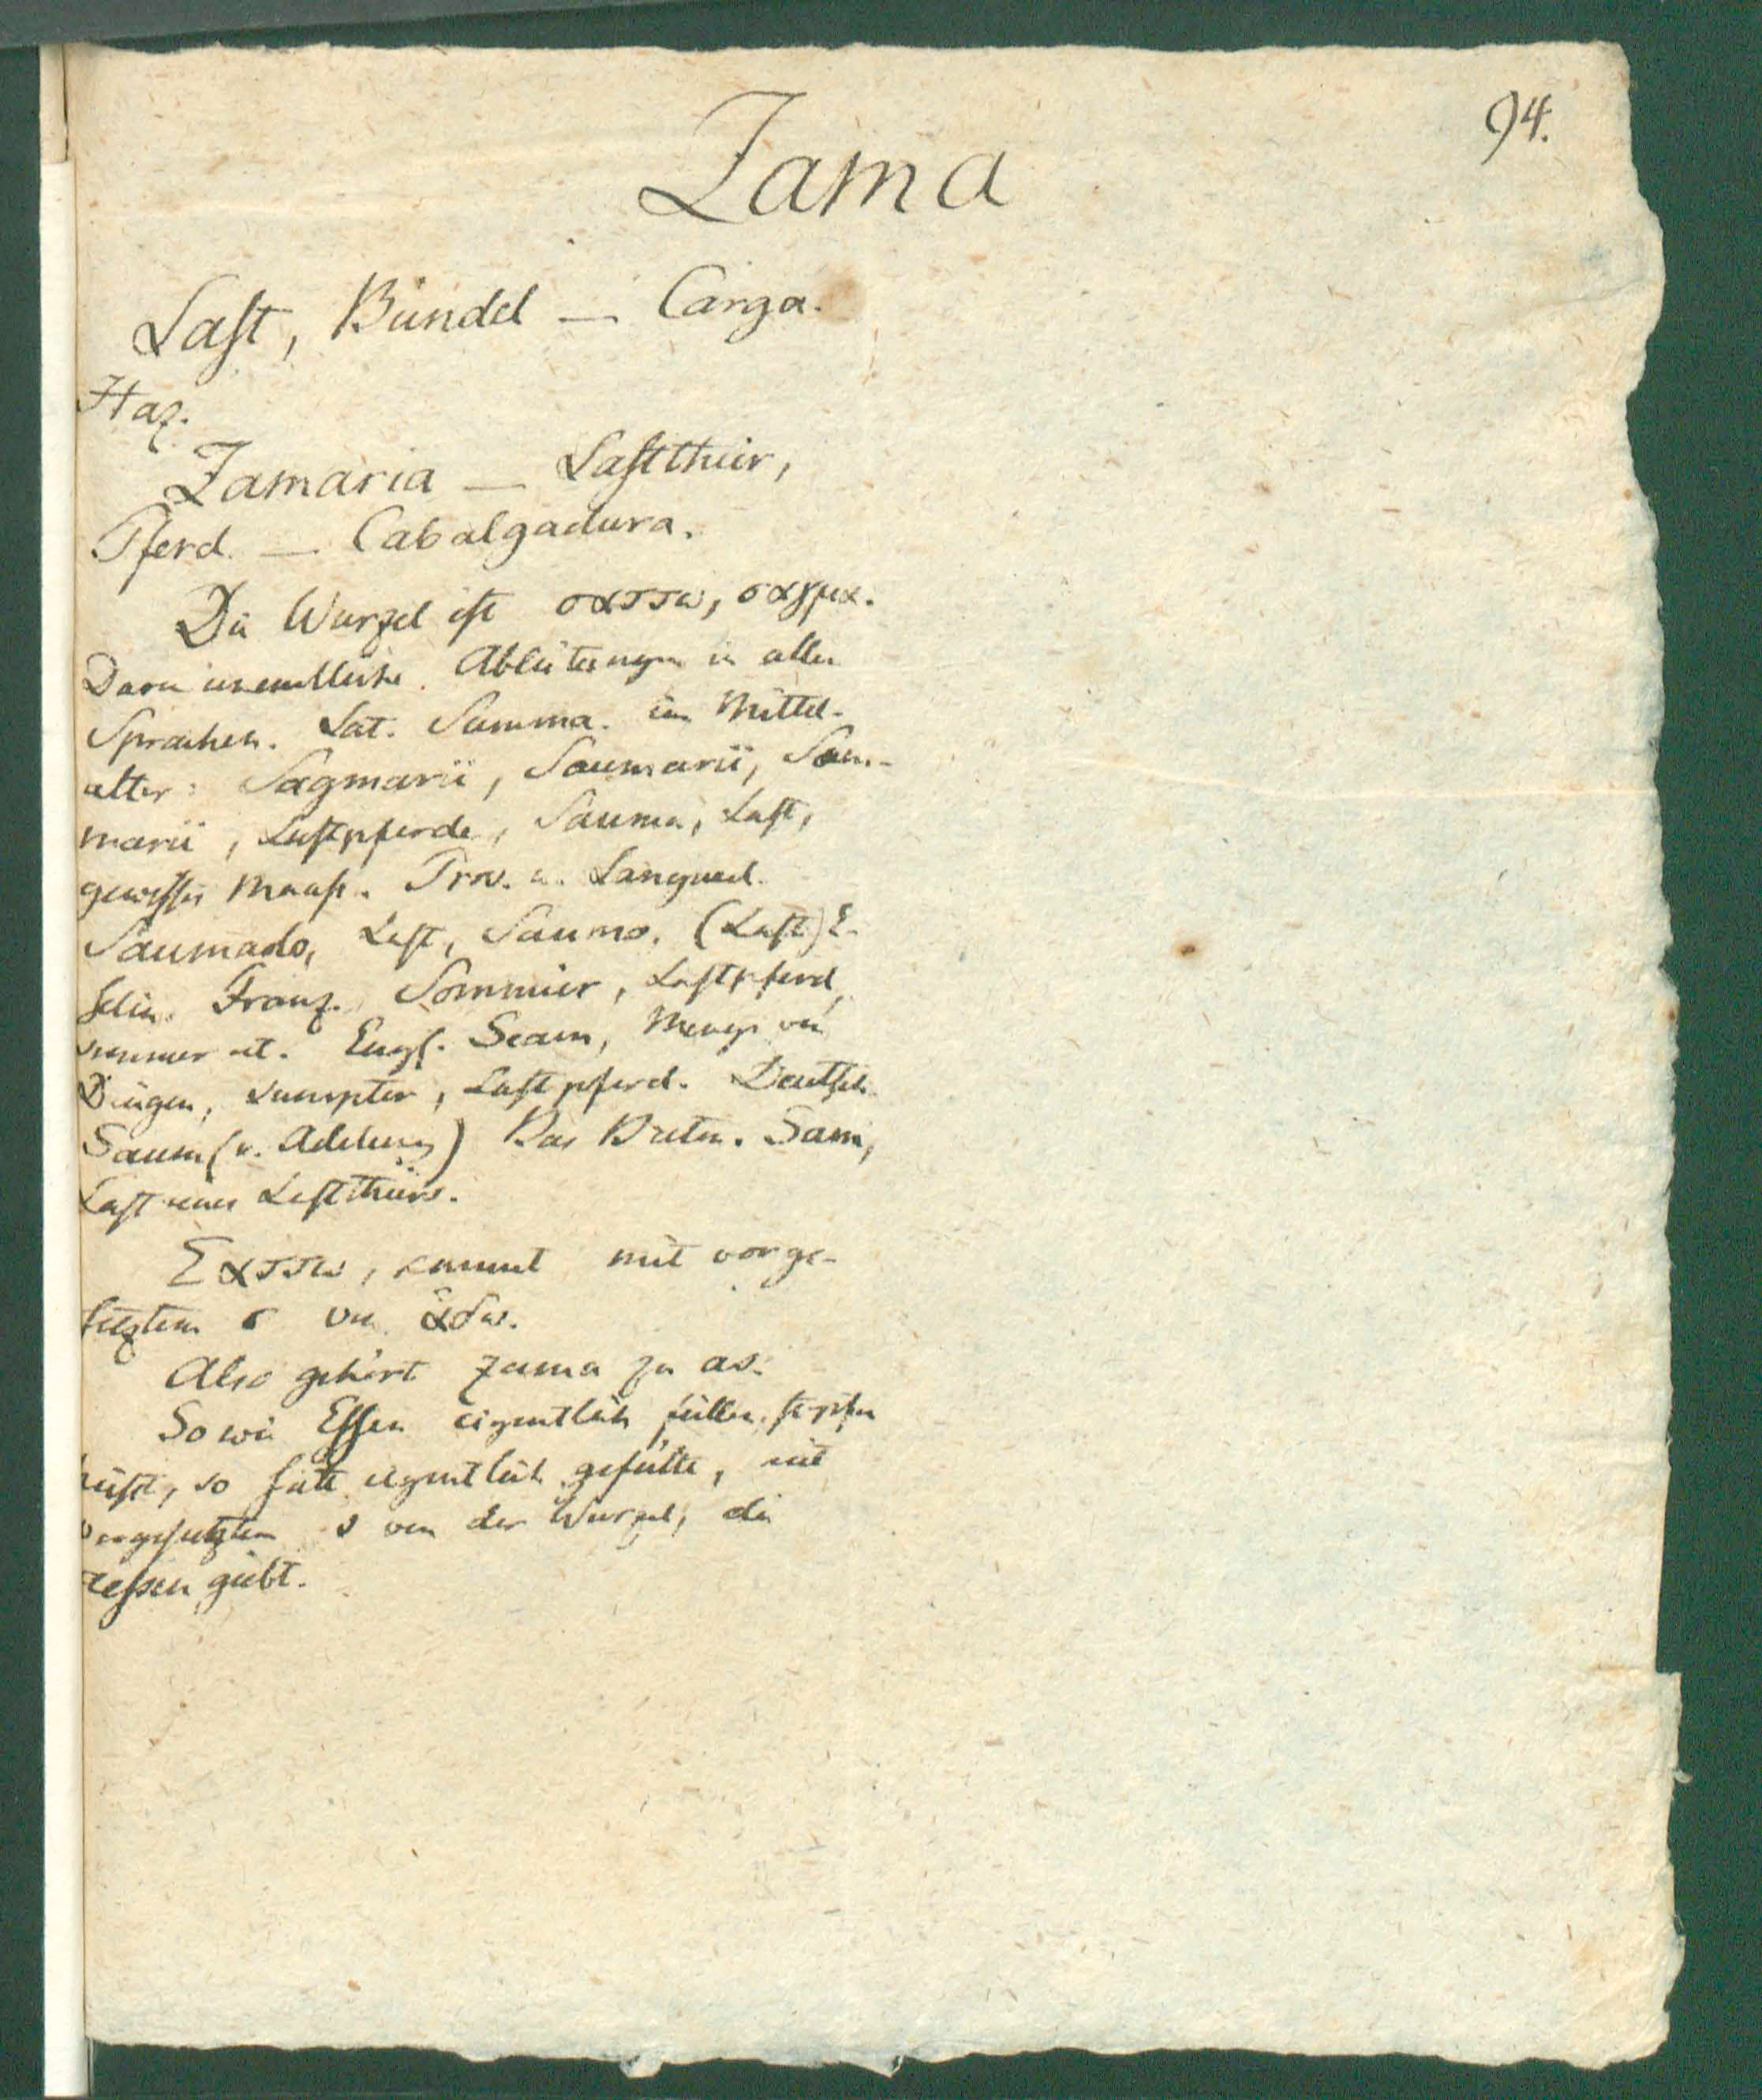 94.
Zama
Last, Bündel — Carga.
Haz.
Zamaria — Lastthier,
Pferd. — Cabalgadura.
Die Wurzel ist σαττω, σαγμα.
Davon unendliche Ableitungen in allen
Sprachen. Lat. Summa. im Mittel-
alter: Sagmarii, Saumarii, Som-
marii, Lastpferde, Sauma, Last,
gewisses Maaß. Prov. u. Langued.
Saumado, Last, Saumo, (Last) E-
selin. Franz. Sommier, Lastpferd,
Engl. Seam, Menge von
Dingen, sumpter, Lastpferd. Deutsch
Saum (v. Adelung) Das Breton. Sam,
Last eines Lastthiers.
Σαττω, kommt mit vorge-
setztem σ von ἁδω.
Also gehört zama zu as.
So wie Essen eigentlich füllen, stopfen
heißt, so satt eigentlich gefüllt, mit
vorgesetztem s von der Wurzel, die
essen giebt.